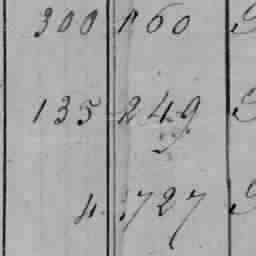 300 160
135 249
4. 727